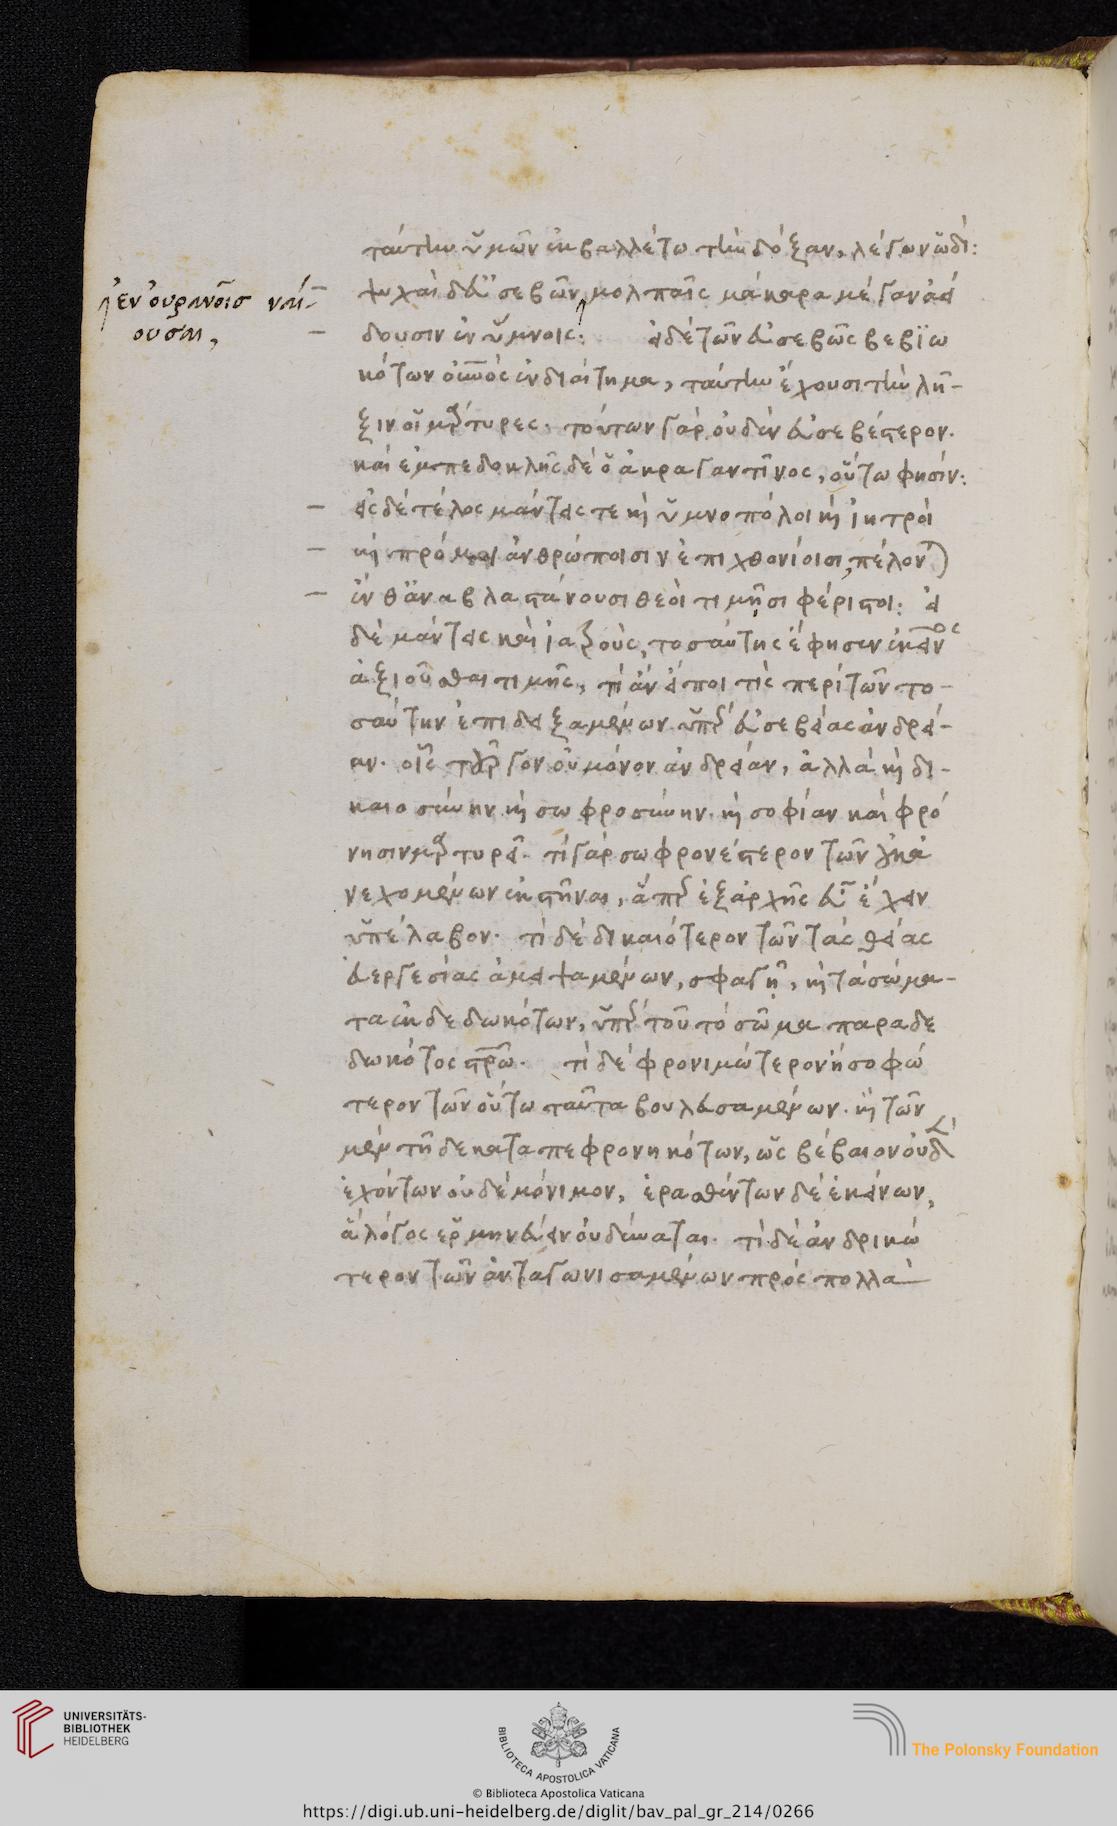 ταύτην ὑμῶν ἐκβαλλέτω τὴν δόξαν, λέγων ὡδί:
ψυχαὶ δ' εὐσεβῶν μολπαῖς μάκαρα μέγαν ἀεί
ἐν οὐρανοῖσ ναί-
ουσαι,
δουσιν ἐν ὕμνοις: εἰ δὲ τῶν εὐσεβῶς βεβϊω
κότων οὐνὸς ἐνδιαίτημα, ταύτην ἔχουσι τὴν λῆ-
ξιν οἱ μάρτυρες. τούτων γὰρ οὐδὲν εὐσεβέστερον.
καὶ ἐμπεδοκλῆς δὲ ὁ ἀκραγαντῖνος, οὕτω φησίν:
εἰς δὲ τέλος μάντεις τε καὶ ὑμνοπόλοι καὶ ἰητροὶ
καὶ πρόμοι ἀνθρώποισιν ἐπιχθονίοισι πέλον)
ἔνθ' ἀναβλαστάνουσι θεοὶ τιμῆσι φέριστοι: εἰ
δὲ μάντεις καὶ ἰατρούς, τοσαύτης ἔφησεν ἐκεῖνος
ἀξιοῦσθαι τιμῆς, τί ἂν εἴποι τὶς περὶ τῶν το-
σαύτην ἐπιδειξαμένων ὑπὲρ εὐσεβείας ἀνδρεί-
αν. οἷς τὸ ἔργον οὐ μόνον ἀνδρείαν, ἀλλὰ καὶ δι-
καιοσύνην καὶ σωφροσύνην. καὶ σοφίαν καὶ φρό
νησιν μαρτυρεῖ. τί γὰρ σωφρονέστερον τῶν
νεχομένων ἐκστῆναι, ἅπερ ἐξαρχῆς εὖ ἔχειν
ὑπέλαβον. τί δὲ δικαιότερον τῶν τὰς θείας
εὐεργεσίας ἀμειψαμένων, σφαγῆ, καὶ τὰ σώμα-
τα ἐκδεδωκότων, ὑπὲρ τοῦ τὸ σῶμα παραδε
δωκότος στρῶ. τί δὲ φρονιμώτερον ἢ σοφώ
τερον τῶν οὕτω ταῦτα βουλευσαμένων. καὶ τῶν
μὲν τῆδε καταπεφρονηκότων, ὡς βέβαιον οὐδὲν
ἐχόντων οὐδὲ μόνιμον, ἐρασθέντων δὲ ἐκείνων,
ἃ λόγος ἑρμηνεύειν οὐ δύναται. τί δὲ ἀνδρικώ
τερον τῶν ἀνταγωνισαμένων πρὸς πολλὰ
UNIVERSITÄTS-
BIBLIOTHEK
HEIDELBERG
BIBLIOTECA APOSTOLICA VATICANA
The Polonsky Foundation
© Biblioteca Apostolica Vaticana
https://digi.ub.uni-heidelberg.de/diglit/bav_pal_gr_214/0266